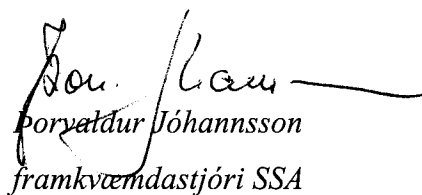 Þorvaldur Jóhannsson
framkvæmdastjóri SSA